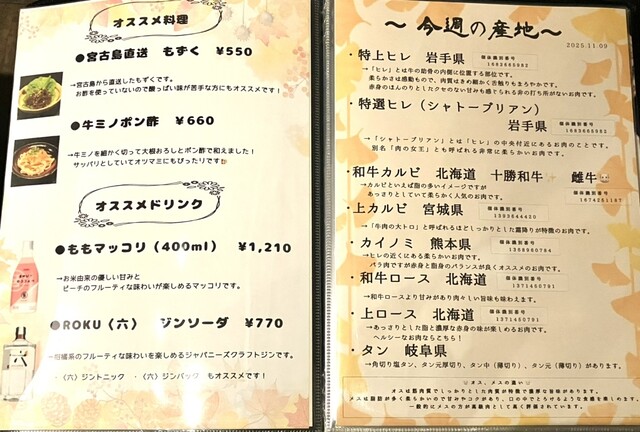 オススメ料理
●宮古島直送 もずく ¥550
→宮古島から直送したもずくです。
お酢を使っていないので酸っぱい味が苦手な方にもオススメです！
●牛ミノポン酢 ¥660
→牛ミノを細かく切って大根おろしとポン酢で和えました！
サッパリとしていてオツマミにもぴったりです
オススメドリンク
●ももマッコリ（400ml） ¥1,210
→お米由来の優しい甘みと
ピーチのフルーティな味わいが楽しめるマッコリです。
●ROKU〈六〉 ジンソーダ ¥770
→柑橘系のフルーティな味わいを楽しめるジャパニーズクラフトジンです。
・〈六〉ジントニック ・〈六〉ジンバック もオススメです！
六
～今週の産地～
2025.11.09
・特上ヒレ 岩手県
個体識別番号
→「ヒレ」とは牛の助骨の内側に位置する部位です。
柔らかさは感動もので、肉質はきめ細かく舌触りもまろやかです。
赤身のほんのりとしたクセのない甘みも感じとられる非の打ち所がないお肉です。
・特選ヒレ（シャトーブリアン）
岩手県
個体識別番号
→「シャトーブリアン」とは「ヒレ」の中央付近にあるお肉のことです。
別名「肉の女王」とも呼ばれる非常に柔らかいお肉です。
・和牛カルビ 北海道 十勝和牛 雌牛
→カルビといえば脂の多いイメージですが
あっさりとしていて柔らかく人気のお肉です。
個体識別番号
・上カルビ 宮城県
個体識別番号
1393644420
→「牛肉の大トロ」と呼ばれるほどしっかりとした霜降りが特徴のお肉です。
・カイノミ 熊本県
個体識別番号
→ヒレの近くにある柔らかいお肉です。
バラ肉ですが赤身と脂身のバランスが良くオススメのお肉です。
・和牛ロース 北海道
個体識別番号
1371450791
→和牛ロースより甘みがあり肉々しい旨味も味わえます。
・上ロース 北海道
個体識別番号
1371450791
→あっさりとした脂と濃厚な赤身の味が楽しめるお肉です。
ヘルシーなお肉ならこちら！
・タン 岐阜県
→角切り塩タン、タン元厚切り、タン中（薄切り）、タン元（薄切り）があります。
オス、メスの違い
オスは筋肉質でしっかりとした肉質が特徴で濃厚な旨味があります。
メスは脂肪が多く柔らかいので甘みやコクがあり、口の中でとろけるような食感を楽しめます。
一般的にメスの方が高級肉として高く評価されています。